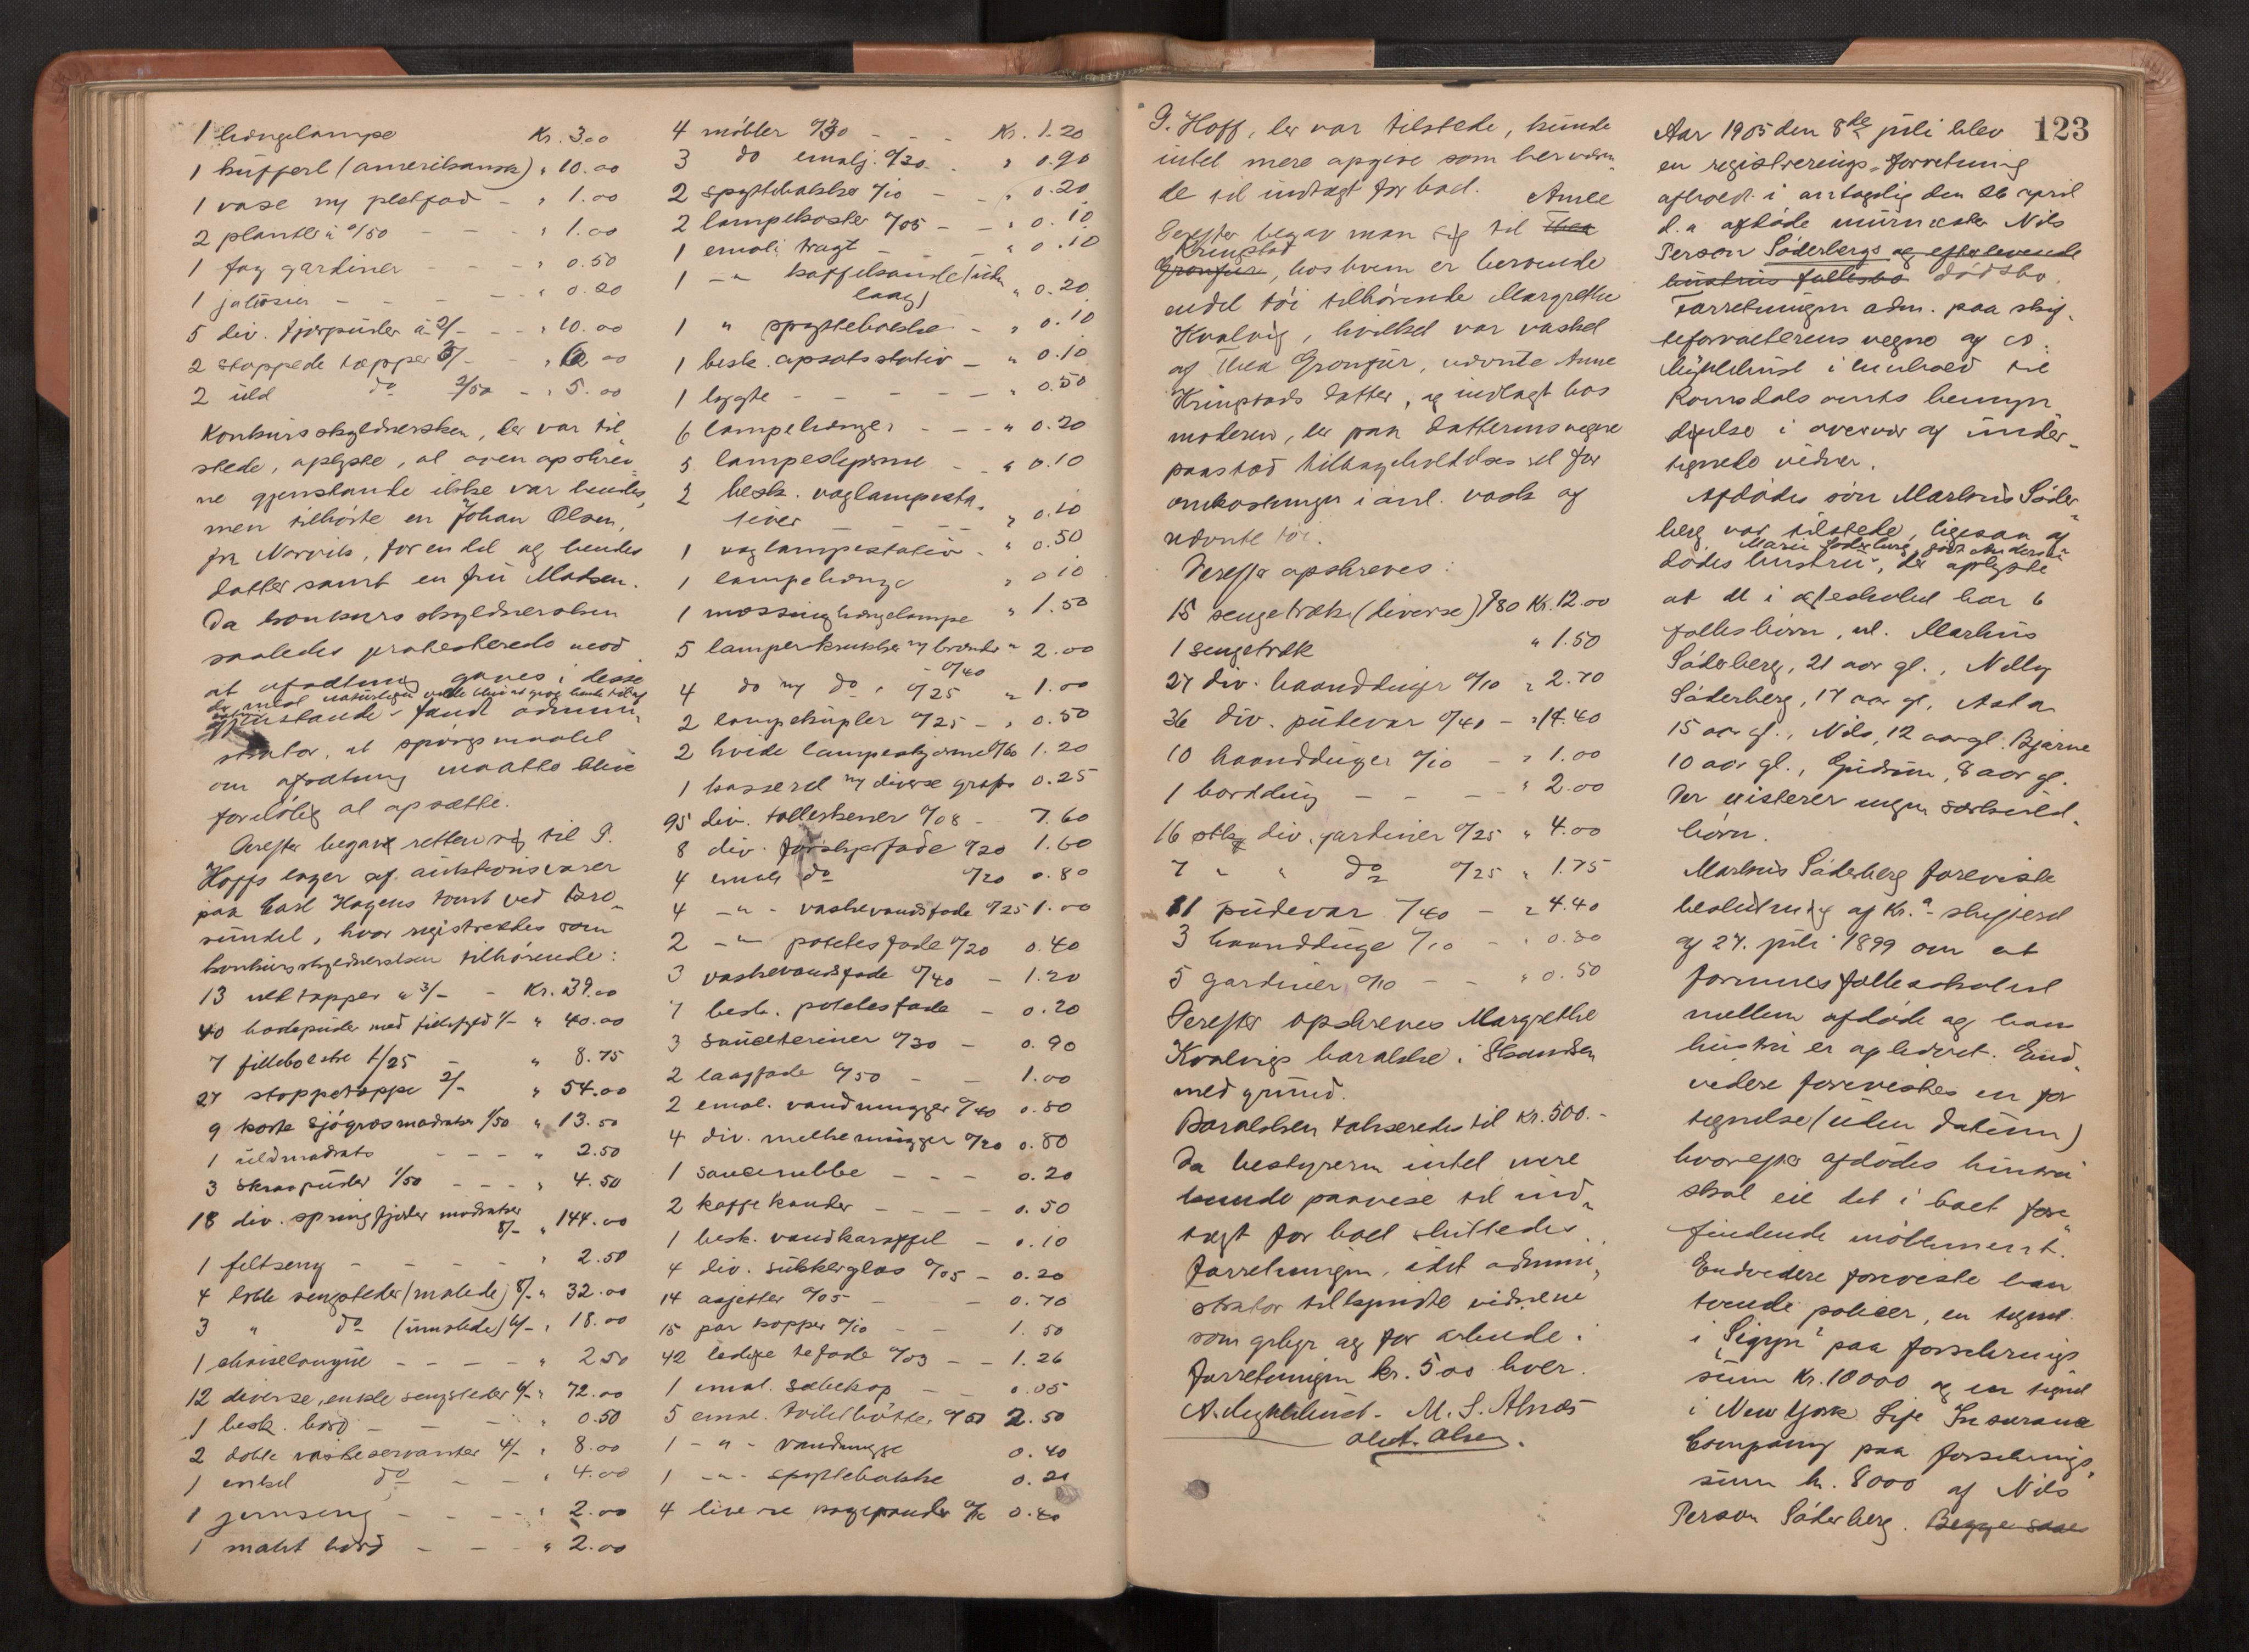 1 hængelampe Kr. 3.00
1 kuffert (amerikansk) " 10.00
1 vase m/ pletfad - " 1.00
2 planter à 0/50 - - " 1.00
1 fag gardiner - - " 0.50
1 jalousi - - - " 0.20
5 div. fjærpuder à 2/- - " 10.00
2 stoppede tæpper 3/- " 6.00
2 uld do 2/50 - " 5.00
Konkursskyldnersken, der var til-
stede, oplyste, at oven opskrev-
ne gjenstande ikke var hendes,
men tilhørte en Johan Olsen,
fra Narvik, for en del og hendes
datter samt en fru Madsen.
Da konkursskyldnersken
saaledes protesterede mod
at afsætning gaves i disse
gjenstande - fandt admini-
strator, at spørgsmaalet
om afsætning maatte blive
foreløbig at opsætte.
Derefter begav retten sig til P.
Hoffs lager af auktionsvarer
paa Carl Hagens tomt ved Bro-
sundet, hvor registreredes som
konkursskyldnersken tilhørende:
13 uldtæpper à 3/- - Kr. 39.00
40 hodepuder med 1/- " 40.00
7 fillebolstre 1/25 - " 8.75
27 stoppetæppe 2/- " 54.00
9 korte sjøgræsmadratser 1/50 " 13.50
1 uldmadrats - - - " 2.50
3 skraapuder 1/50 - - - " 4.50
18 div. springfjæder madratser
8/- " 144.00
1 feltseng - - - " 2.50
4 doble sengsteder (malede) 8/- " 32.00
3 " do (umalede) 6/- " 18.00
1 chaiselongue - - - - " 2.50
12 diverse, enkle sengsteder 6/- " 72.00
1 besk. bord - - - " 0.50
2 doble vaskeservanter 4/- " 8.00
1 enkel do - - " 4.00
1 jernseng - - - - " 2.00
1 malet bord - - - " 2.00
4 møbler 0/30 - - - Kr. 1.20
3 do emalj. 0/30 - " 0.90
2 spyttebakker 0/10 - - " 0.20
2 lampekoster 0/05 - - " 0.10
1 emalj. tragt - - " 0.10
1 -"- kaffekande (uden
laag) " 0.20
1 " spyttebakke - " 0.10
1 besk. opsatsstativ - " 0.10
1 løgte - - - - - " 0.50
6 lampehænger - - - " 0.20
5 lampeskjærme - - " 0.10
2 besk. væglampesta-
tiver - - - " 0.10
1 væglampestativ - " 0.50
1 lampehænge " 0.10
1 messinghængelampe " 1.50
5 lamperkrukker m/ brænder " 2.00
- 0/40
4 do m/ do " 0/25 " 1.00
2 lampekupler 0/25 - " 0.50
2 hvide lampeskjærme 0/60 1.20
1 kasserel m/ diverse 0.25
95 div. tallerkener 0/08 - 7.60
8 div. fade 0/20 1.60
4 emalj. do 0/20 0.80
4 -"- vaskevandsfade 0/25 1.00
2 -"- potetesfade 0/20 0.40
3 vaskevandsfade 0/40 - 1.20
7 besk. potetesfade - 0.20
3 sauceteriner 0/30 - 0.90
2 laagfade 0/50 - - 1.00
2 emal. vandmugger 0/40 0.80
4 div. melkemugger 0/20 0.80
1 saucenebbe - - - 0.20
2 kaffekander - - - - 0.50
1 besk. vandkaraffel - 0.10
4 div. sukkerglas 0/05 - 0.20
14 asjetter 0/05 - - 0.70
15 par kopper 0/10 - - 1.50
42 ledige tefade 0/03 - - 1.26
1 emal. sæbekop - - 0.05
5 emal. toiletbøtter 0/50 2.50
1 -"- vandmugge 0.40
1 -"- spyttebakke 0.20
4 diverse kagepander 0/10 0.40
P. Hoff, der var tilstede, kunde
intet mere opgive som henhøren-
de til indtægt for boet. Anne
Derefter begav man sig til Thea
Kringstad
Gronfur, hos hvem er beroende
endel tøi tilhørende Margrethe
Kvalvig, hvilket var vasket
af Thea Gronfur, udvente Anne
Kringstads datter, og indlagt hos
moderen, der paa datterens vegne
paastod tilbageholdelsesret for
omkostninger i anl. vask af
udvente tøi.
Derefter opskreves:
15 sengetræk (diverse) 0/80 Kr. 12.00
1 sengetræk " 1.50
27 div. haandduger 0/10 " 2.70
36 div. putevar 0/40 - " 14.40
10 haandduger 0/10 - " 1.00
1 bordduk - - - " 2.00
16 stk div. gardiner 0/25 " 4.00
7 " " do 0/25 " 1.75
11 pudevar 0/40 - " 4.40
3 haandduge 0/10 - " 0.30
5 gardiner 0/10 - - " 0.50
Derefter opskreves Margrethe
Kvalvigs barakke i Skansen
med grund.
Barakken takseredes til kr. 500.-
Da bestyreren intet mere
kunde paavise til ind-
tægt for boet sluttedes
forretningen, idet admini-
strator tilkjendte vidnene
som gebyr og for arbeide i
forretningen kr. 5.00 hver.
A. Lighthust. M. S. Alnæs
Olut. Olsen.
123
Aar 1905 den 8de juli blev
en registrerings-forretning
afholdt i antagelig den 26 april
d. a. afdøde murmester Nils
Person Söderbergs og efterlevende
hustrus fællesbo dødsbo.
Forretningen adm. paa skif-
teforvalterens vegne af
i henhold til
Romsdals amts bemyn-
digelse i overvær af under-
tegnede vidner.
Afdødes søn Markus Söder-
berg var tilstede, ligesaa af-
Marie Söderberg født Anderson
dødes hustru, der oplyste
at de i ægteskabet har 6
fællesbørn, nl. Markus
Söderberg, 21 aar gl., Nelly
Söderberg, 17 aar gl., Asta
15 aar gl., Nils, 12 aar gl. Bjarne
10 aar gl., Gudrun, 8 aar gl.
Der existerer ingen særkuld-
børn.
Markus Söderberg foreviste
beslutning af Kr.a skifteret
af 27. juli 1899 om at
formuesfællesskabet
mellem afdøde og hans
hustru er ophævet. End-
videre forevistes en for-
tegnelse (uden datum)
hvorefter afdødes hustru
skal eie det i boet fore-
findende møblement.
Endvidere foreviste han
tvende policer, en tegnet
i "Sigyn" paa forsikrings
sum kr. 10000 og en tegnet
i New York Life Insurance
Company paa forsikrings-
sum kr. 8000 af Nils
Person Söderberg. Begge saae